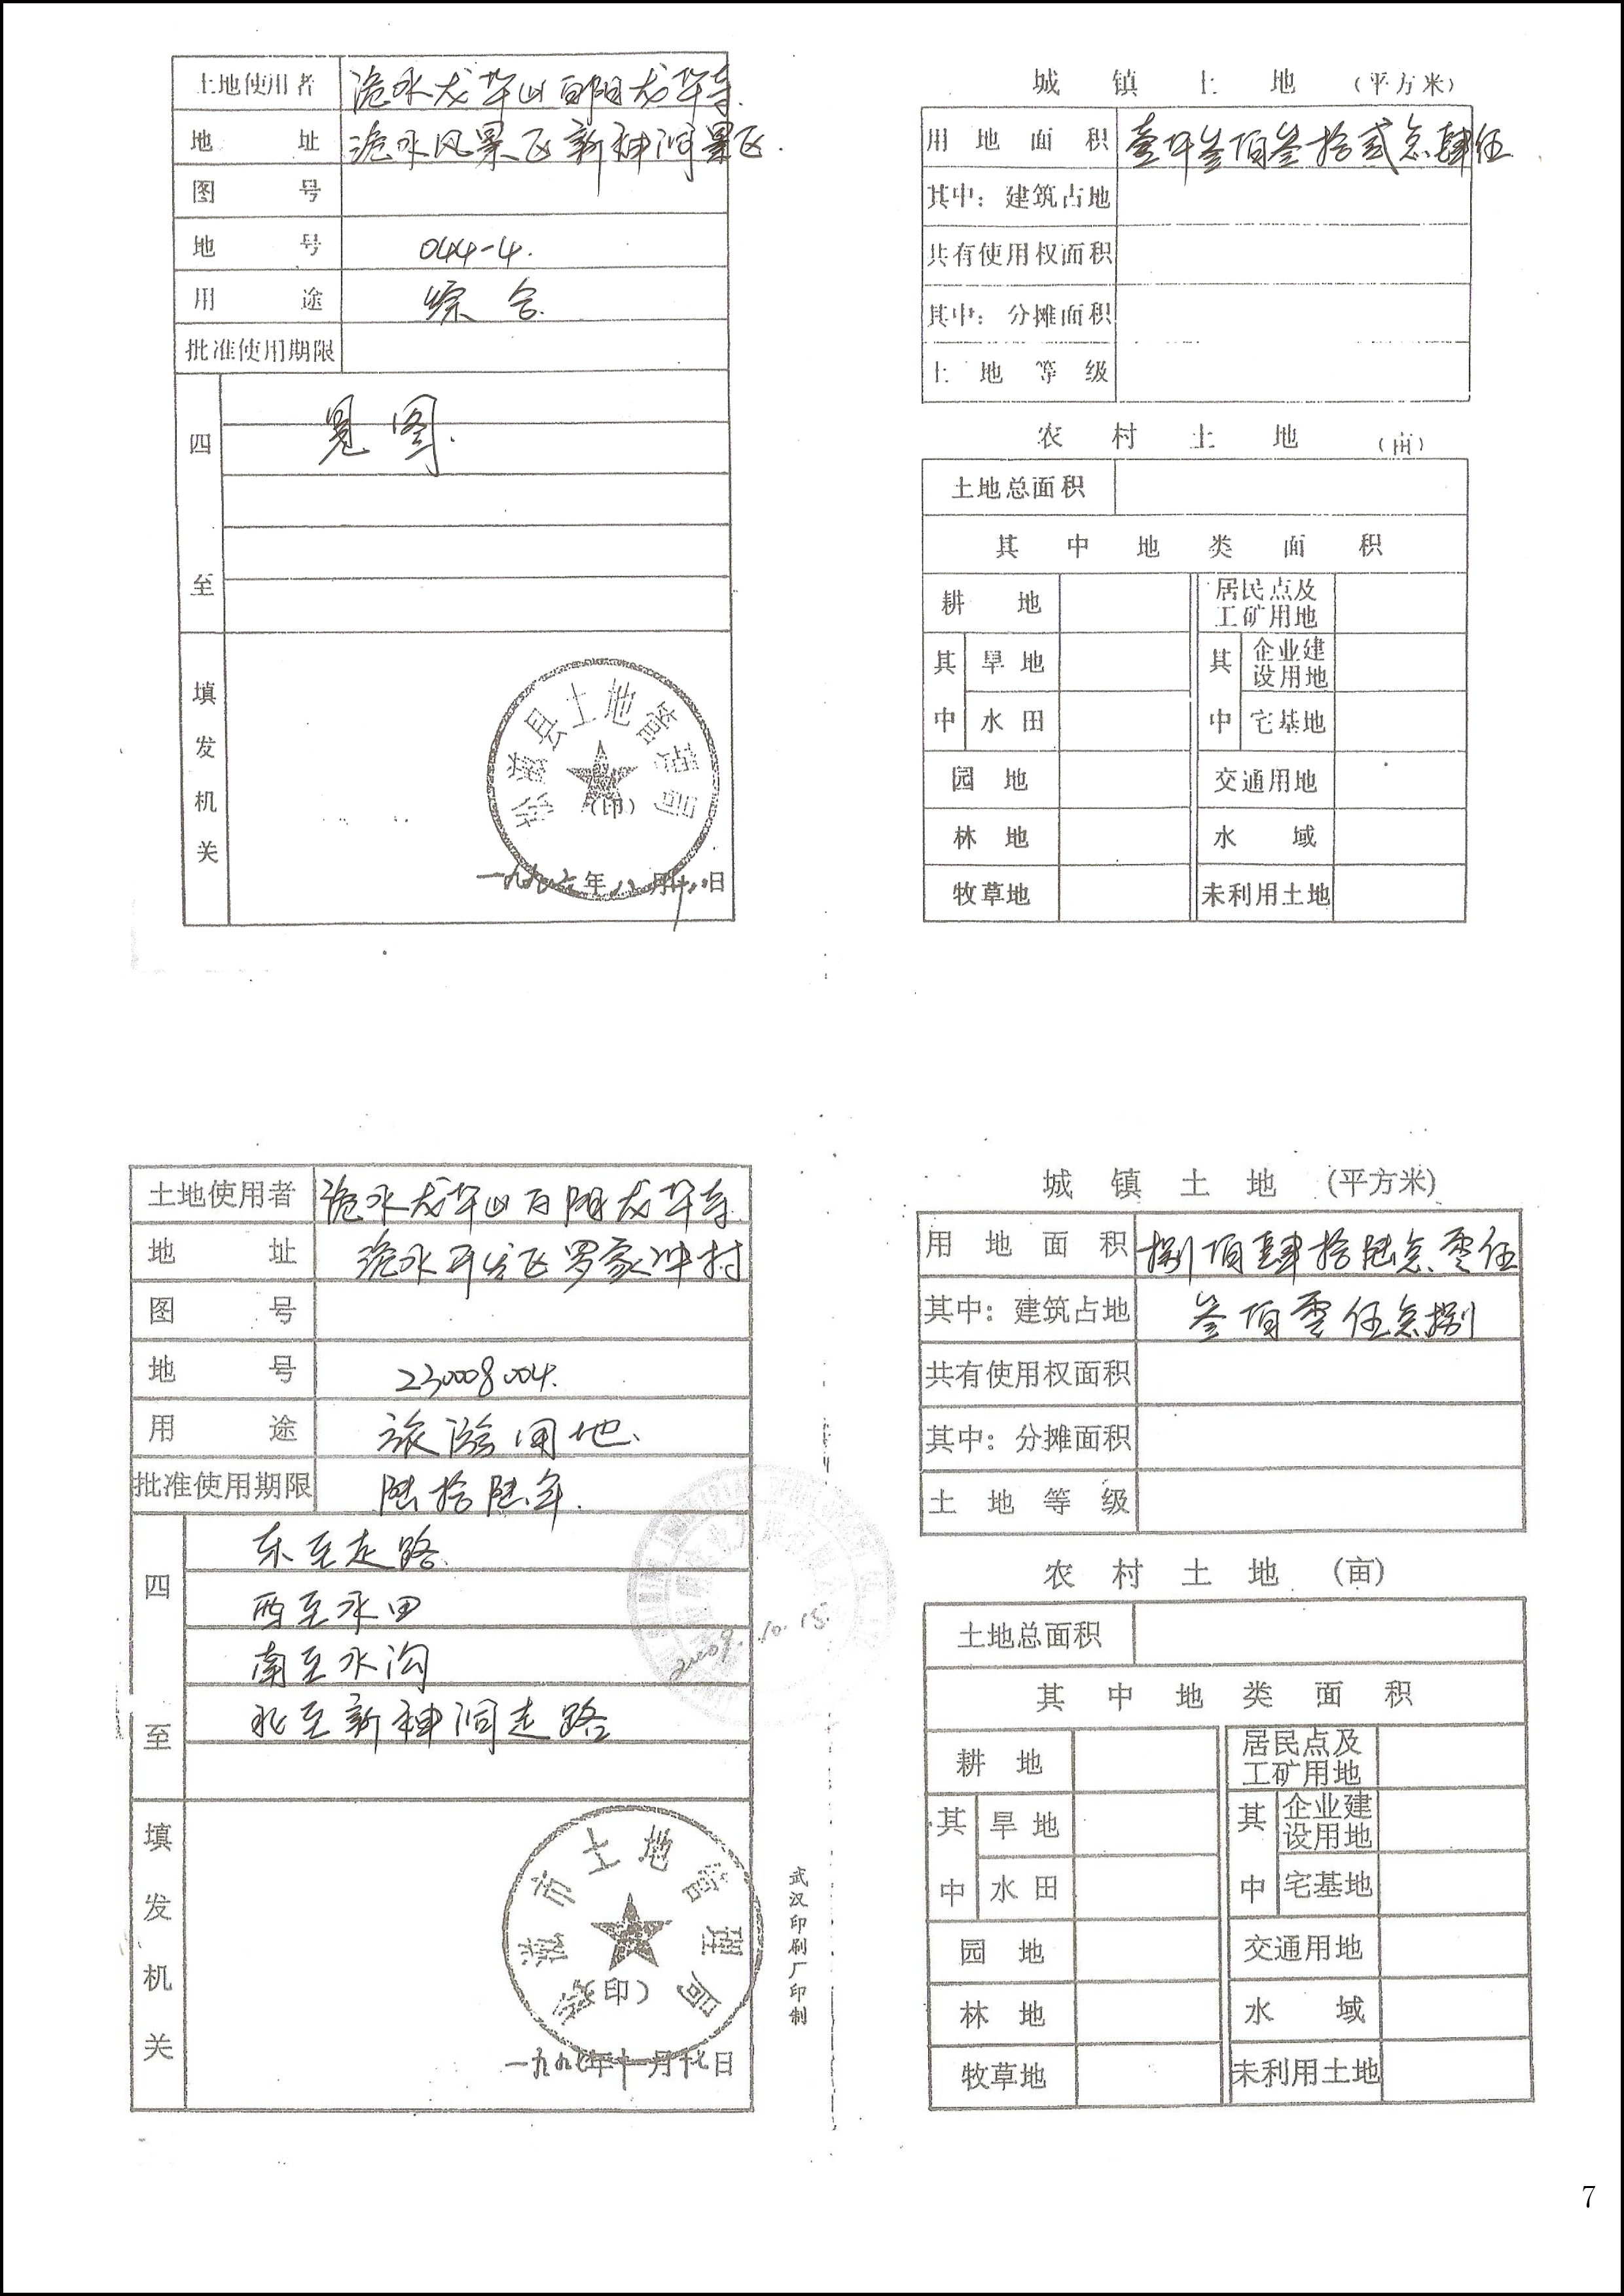 土地使用者 洈水龙华山百阳龙华寺
地址 洈水风景区新神洞景区.
图号
地号 044-4.
用途 综合
批准使用期限
四至 見图.
填发机关
松滋县土地管理局
(印)
一九九六年八月十八日
城镇土地 (平方米)
用地面积 壹仟叁佰叁拾贰点肆伍
其中: 建筑占地
共有使用权面积
其中: 分摊面积
土地等级
农村土地 (亩)
土地总面积
其中地类面积
耕地 居民点及工矿用地
其中 旱地 其中 企业建设用地
水田 宅基地
园地 交通用地
林地 水域
牧草地 未利用土地
土地使用者 洈水龙华山百阳龙华寺
地址 洈水开发区罗家冲村
图号
地号 23008004.
用途 旅游用地.
批准使用期限 陆拾陆年.
四至 东至走路
西至水田
南至水沟
北至新神洞走路
2009.10.15.
填发机关
松滋市土地管理局
(印)
一九九七年十一月十七日
武汉印刷厂印制
城镇土地 (平方米)
用地面积 捌佰肆拾陆点零伍
其中: 建筑占地 叁佰零伍点捌
共有使用权面积
其中: 分摊面积
土地等级
农村土地 (亩)
土地总面积
其中地类面积
耕地 居民点及工矿用地
其中 旱地 其中 企业建设用地
水田 宅基地
园地 交通用地
林地 水域
牧草地 未利用土地
7